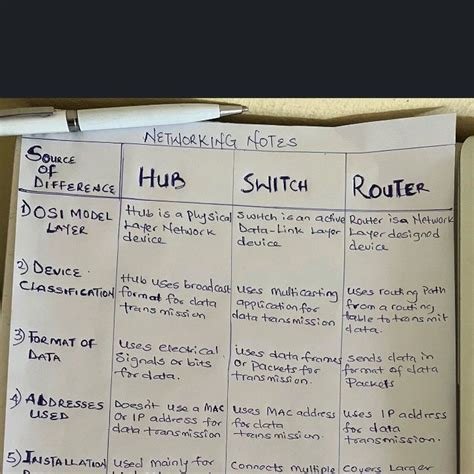 NETWORKING NOTES
SOURCE OF DIFFERENCE
HUB
SWITCH
ROUTER
1) OSI MODEL LAYER
Hub is a Physical
Layer Network
device
Switch is an active
Data-Link Layer
device
Router is a Network
Layer designed
device
2) DEVICE
CLASSIFICATION
Hub uses broadcast
format for data
transmission
uses multicasting
application for
data transmission
uses routing path
from a routing
table to transmit
data.
3) FORMAT OF
DATA
uses electrical
Signals or bits
for data.
uses data frames
or packets for
transmission.
sends data in
format of data
Packets
4) ADDRESSES
USED
Doesn't use a MAC
or IP address for
data transmission
uses MAC address
for data
transmission.
uses IP address
for data
transmission.
5) INSTALLATION
used mainly for
connects multiple
covers Larger